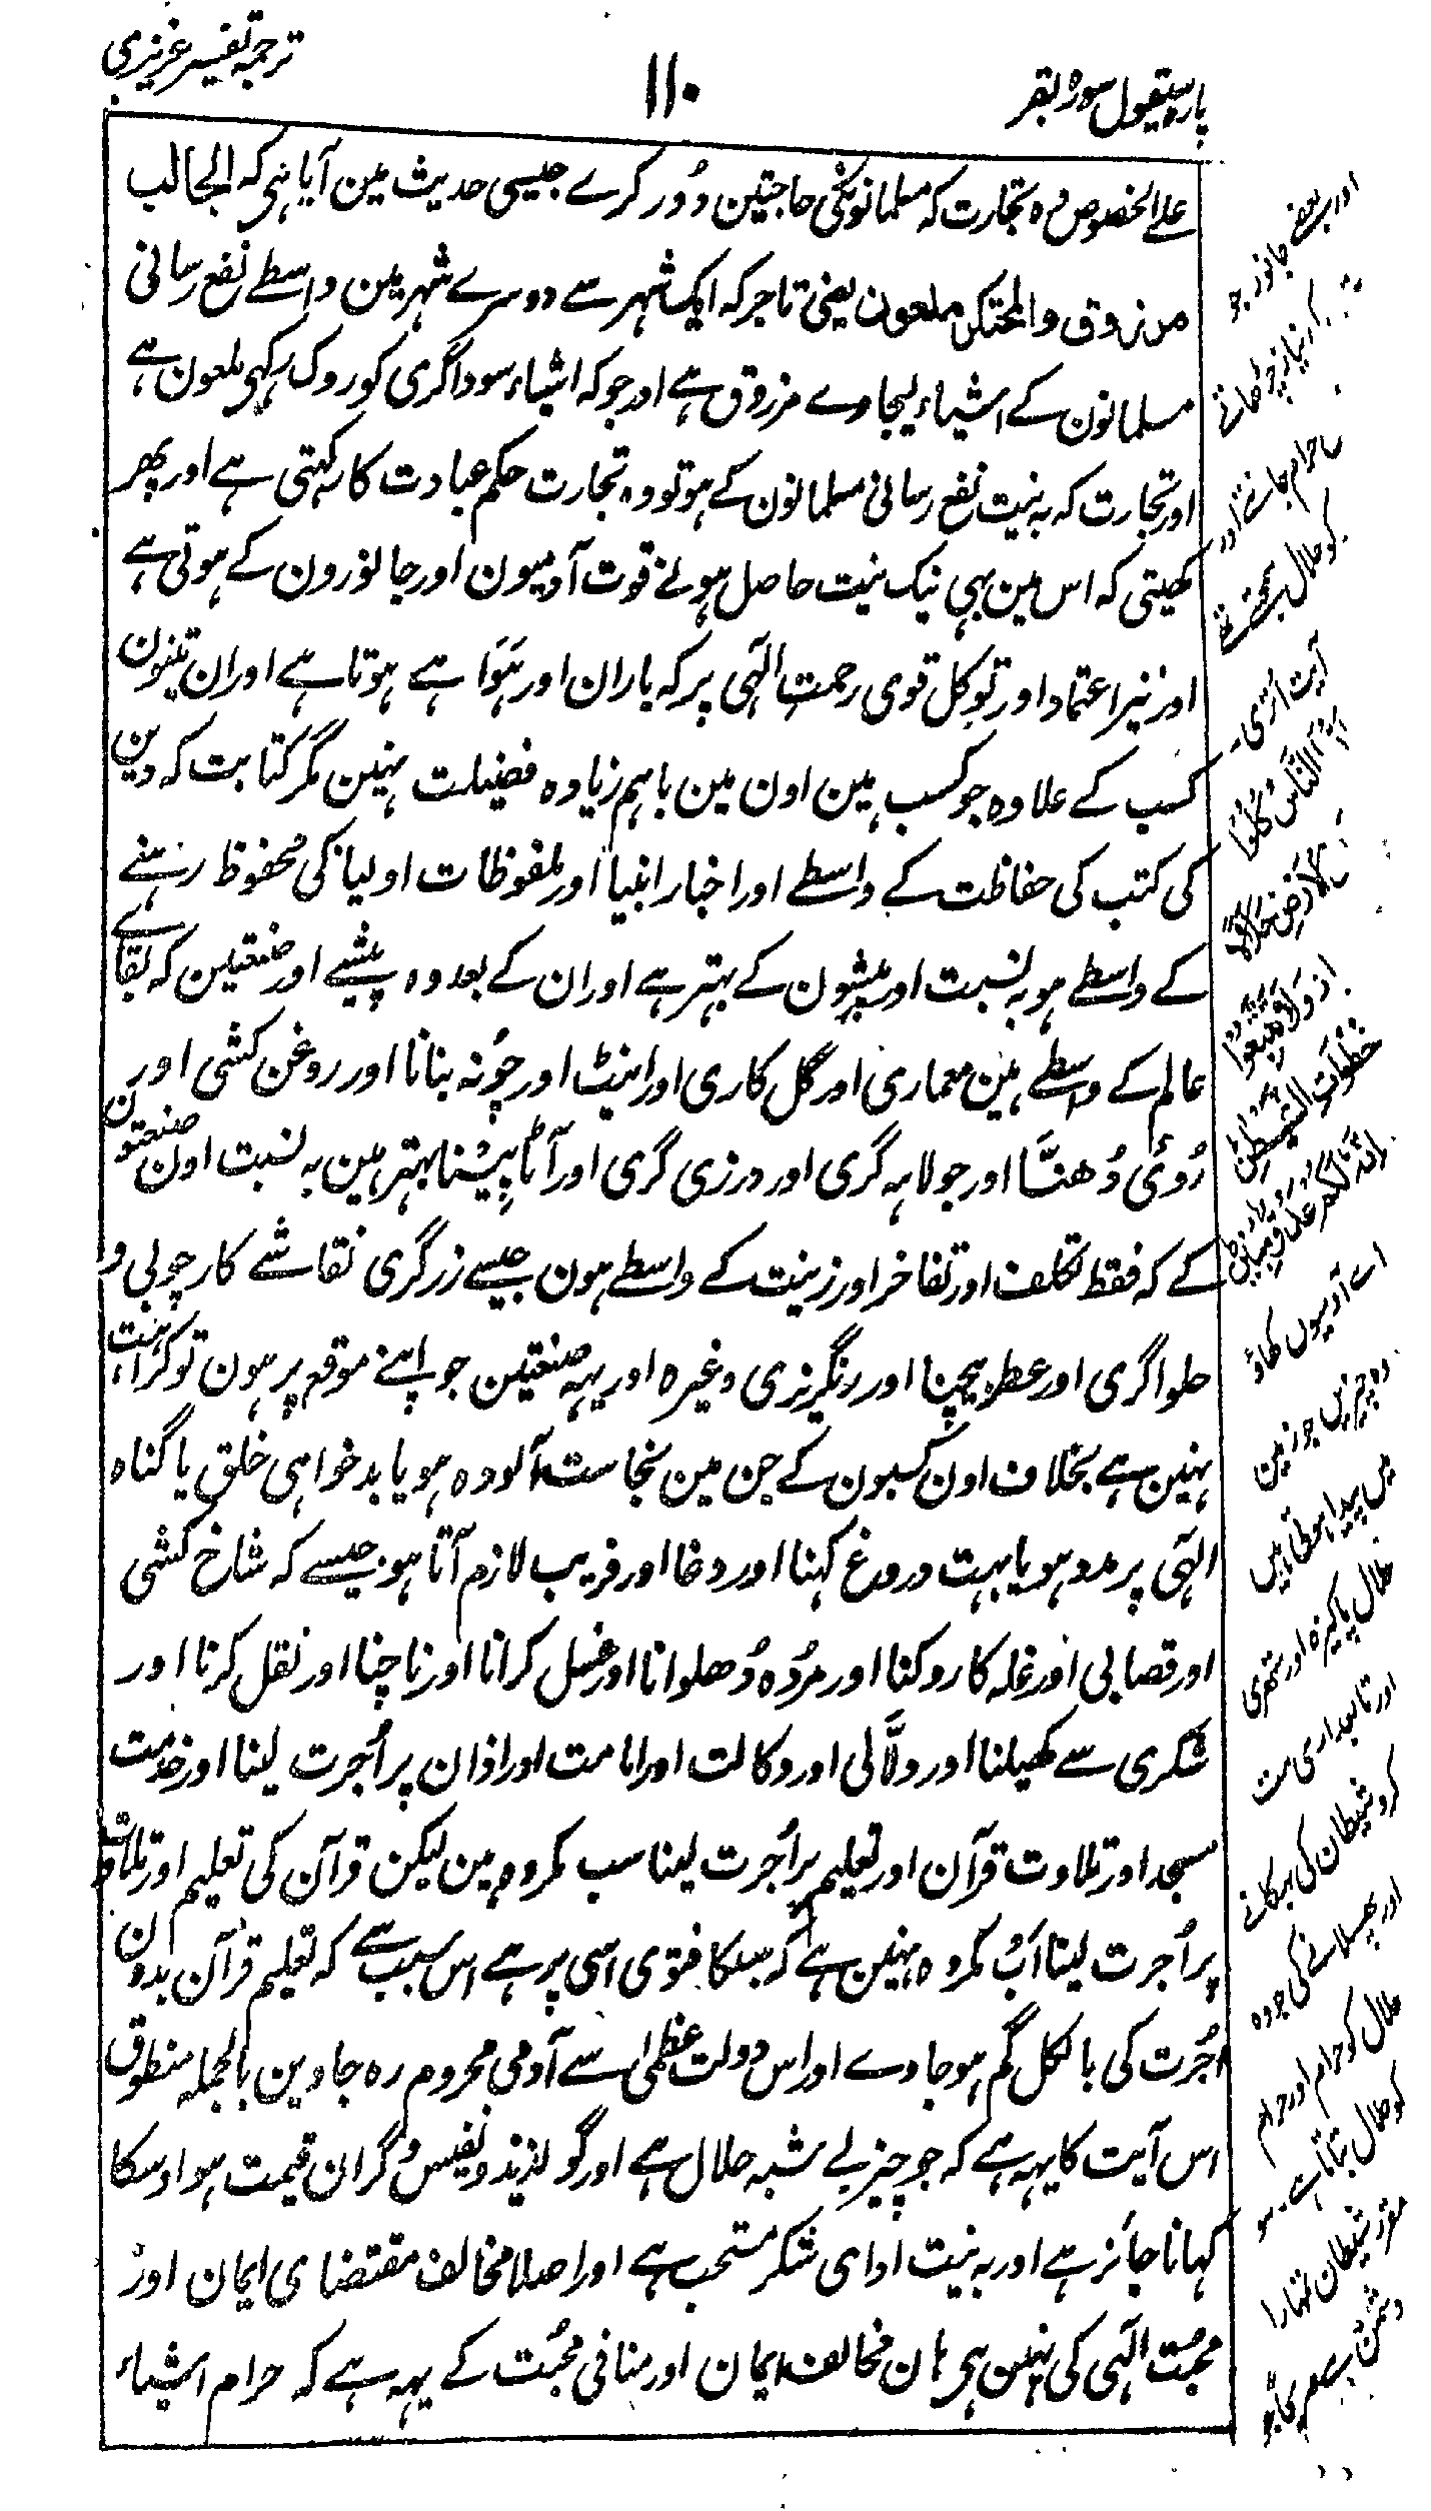 پارہ سیقول سورہ بقر
۱۱۰
ترجمہ تفسیر عزیزی
علے الخصوص وہ تجارت کہ مسلمانونکی حاجتین دُور کرے جیسی حدیث مین آیا ہی کہ الجالب
مرزوق والمحتکر ملعون یعنی تاجر کہ ایک شہر سے دوسرے شہر مین واسطے نفع رسانی
مسلمانون کے اشیاء لیجاوے مرزوق ہے اور جو کہ اشیاء سوداگری کو روک رکہی ملعون ہے
اور تجارت کہ بہ نیت نفع رسانی مسلمانون کے ہو تو وہ تجارت حکم عبادت کا رکہتی ہے اور پھر
کھیتی کہ اس مین بہی نیک نیت حاصل ہونے قوت آدمیون اور جانورون کے ہوتی ہے
اور نیز اعتماد اور توکل قوی رحمت الٰہی پر کہ باران اور ہَوَا ہے ہوتا ہے اور ان تینون
کسب کے علاوہ جو کسب ہین اون مین باہم زیادہ فضیلت نہین مگر کتابت کہ دین
کی کتب کی حفاظت کے واسطے اور اخبار انبیا اور ملفوظات اولیا کی محفوظ رہنے
کے واسطے ہو بہ نسبت اور پیشون کے بہتر ہے اور ان کے بعد وہ پیشے اور صنعتین کہ بقاے
عالم کے واسطے ہین معماری اور گل کاری اور اینٹ اور چُونہ بنانا اور روغن کشی اور
رُوئی دُھنّا اور جولاہہ گری اور درزی گری اور آٹا پیسنا بہتر ہین بہ نسبت اون صنعتون
کے کہ فقط تکلف اور تفاخر اور زینت کے واسطے ہون جیسے زرگری نقاشے کارچوبی و
حلواگری اور عطر بیچنا اور رنگریزی وغیرہ اور یہہ صنعتین جو اپنے موقع پر ہون تو کراہت
نہین ہے بخلاف اون کسبون کے جن مین نجاست آلودہ ہو یا بدخواہی خلق یا گناہ
الٰہی پر مدد ہو یا بہت دروغ کہنا اور دغا اور فریب لازم آتا ہو جیسے کہ شاخ کشی
اور قصابی اور غلہ کا روکنا اور مرُدہ دُھلوانا اور غسل کرانا اور ناچنا اور نقل کرنا اور
شکری سے کھیلنا اور دلّالی اور وکالت اور امامت اور اذان پر اُجرت لینا اور خدمت
مسجد اور تلاوت قرآن اور تعلیم پر اُجرت لینا سب مکروہ ہین لیکن قرآن کی تعلیم اور تلاوت
پر اُجرت لینا اَبْ مکروہ نہین ہے کہ سبکا فتوی اسی پر ہے اس سبب سے کہ تعلیم قرآن بدون
اُجرت کی بالکل گم ہو جاوے اور اس دولت عظمی سے آدمی محروم رہ جاوین بالجملہ منطوق
اس آیت کا یہہ ہے کہ جو چیز بے شبہ حلال ہے اور گو لذیذ و نفیس و گران قیمت ہو اوسکا
کہانا جائز ہے اور بہ نیت اداے شکر مستحب ہے اور اصلا مخالف مقتضاے ایمان اور
محبُت الٰہی کی نہین ہی ہان مخالف ایمان اور منافی محبُت کے یہہ ہے کہ حرام اشیاء
اور بعضے جانور جو
نیاز چڑھاتے
حرام جانتے اور
کو حلال سمجھتے
آیت اتری
النَّاسُ كُلُوا
الْأَرْضِ حَلَالًا
وَلَا تَتَّبِعُوا
خُطُوَاتِ الشَّيْطَانِ
إِنَّهُ لَكُمْ عَدُوٌّ مُبِينٌ
اے آدمیون کھاؤ
وہ چیزین جو زمین
مین پیدا ہوتی ہین
حلال پاکیزہ اور ستھری
اور تابعداری مت
کرو شیطان کی بہکانے
اور پھسلانے کی جو وہ
حلال کو حرام اور حرام
کو حلال بتاتا ہے
شیطان تمہارا
دشمن ہے